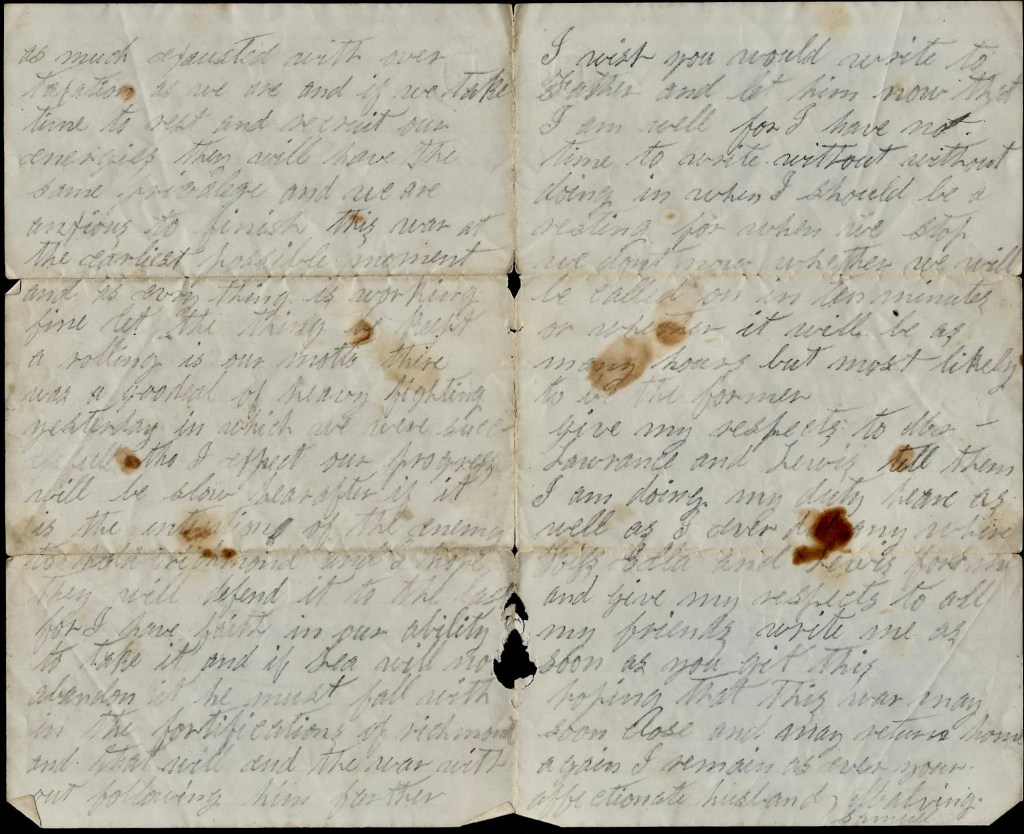 as much exausted with over
taxation as we are and if we take
time to rest and recruit our
energies they will have the
same privalege and we are
anxious to finish this war at
the earliest possible moment
and as evry thing is working
fine let the thing be kept
a rolling is our motto there
was a goodeal of heavy fighting
yesterday in which we were succ-
essfull tho I expect our progress
will be slow hearafter if it
is the intentions of the enemy
to hold richmond and I hope
they will defend it to the last
for I have faith in our ability
to take it and if Lea will not
abandon it he must fall with
in the fortifications of richmond
and that will end the war with
out following him farther
I wish you would write to
Father and let him now that
I am well for I have not
time to write without without
doing in when I should be a
resting for when we stop
we dont now whether we will
be called on in ten minutes
or whether it will be as
many hours but most likely
to be the former
give my respects to Mrs -
Lawrance and Lewis tell them
I am doing my duty heare as
well as I ever did any where
Kiss Ella and Lewis for me
and give my respects to all
my friends write me as
soon as you git this
hoping that this war may
soon Close and may return home
again I remain as ever your
affectionate husband,
Samuel